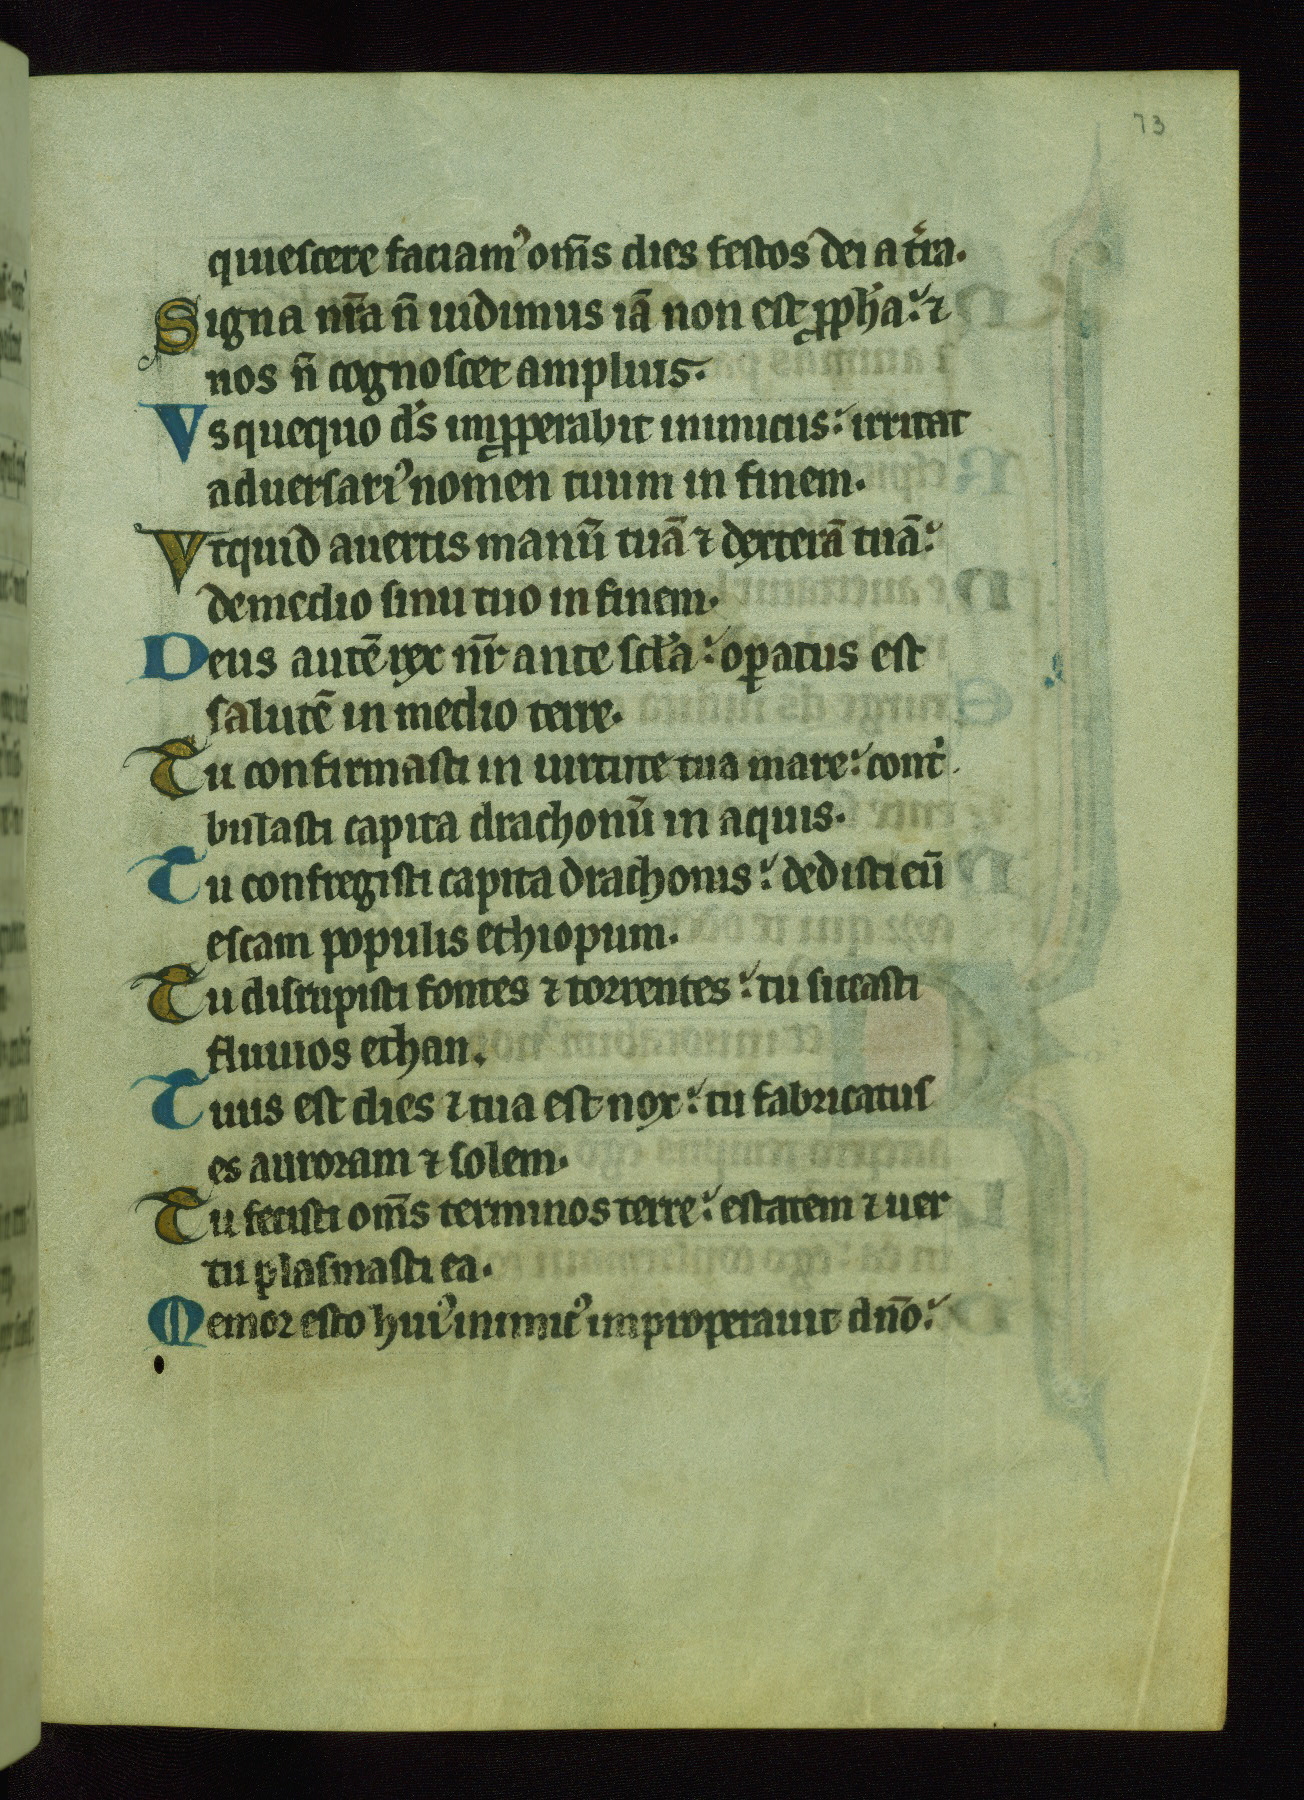 73
quiescere faciamꝰ om̄s dies festos dei a t̄ra.
Signa nr̄a n̄ uidimus iā non est ꝓph̄a: ⁊
nos n̄ cognoscet amplius.
Vsquequo ds̄ imꝓperabit inimicus: irritat
aduersariꝰ nomen tuum in finem.
Vtquid auertis manū tuā ⁊ dexterā tuā:
de medio sinu tuo in finem.
Deus autē rex nr̄ ante scl̄a: oꝑatus est
salutē in medio terre.
Tu confirmasti in uirtute tua mare: cont̄
bulasti capita drachonū in aquis.
Tu confregisti capita drachonis: dedisti eū
escam populis ethiopum.
Tu disrupisti fontes ⁊ torrentes: tu siccasti
fluuios ethan.
Tuus est dies ⁊ tua est nox: tu fabricatus
es auroram ⁊ solem.
Tu fecisti om̄s terminos terre: estatem ⁊ uer
tu plasmasti ea.
Memor esto huiꝰ inimicꝰ improperauit dn̄o: